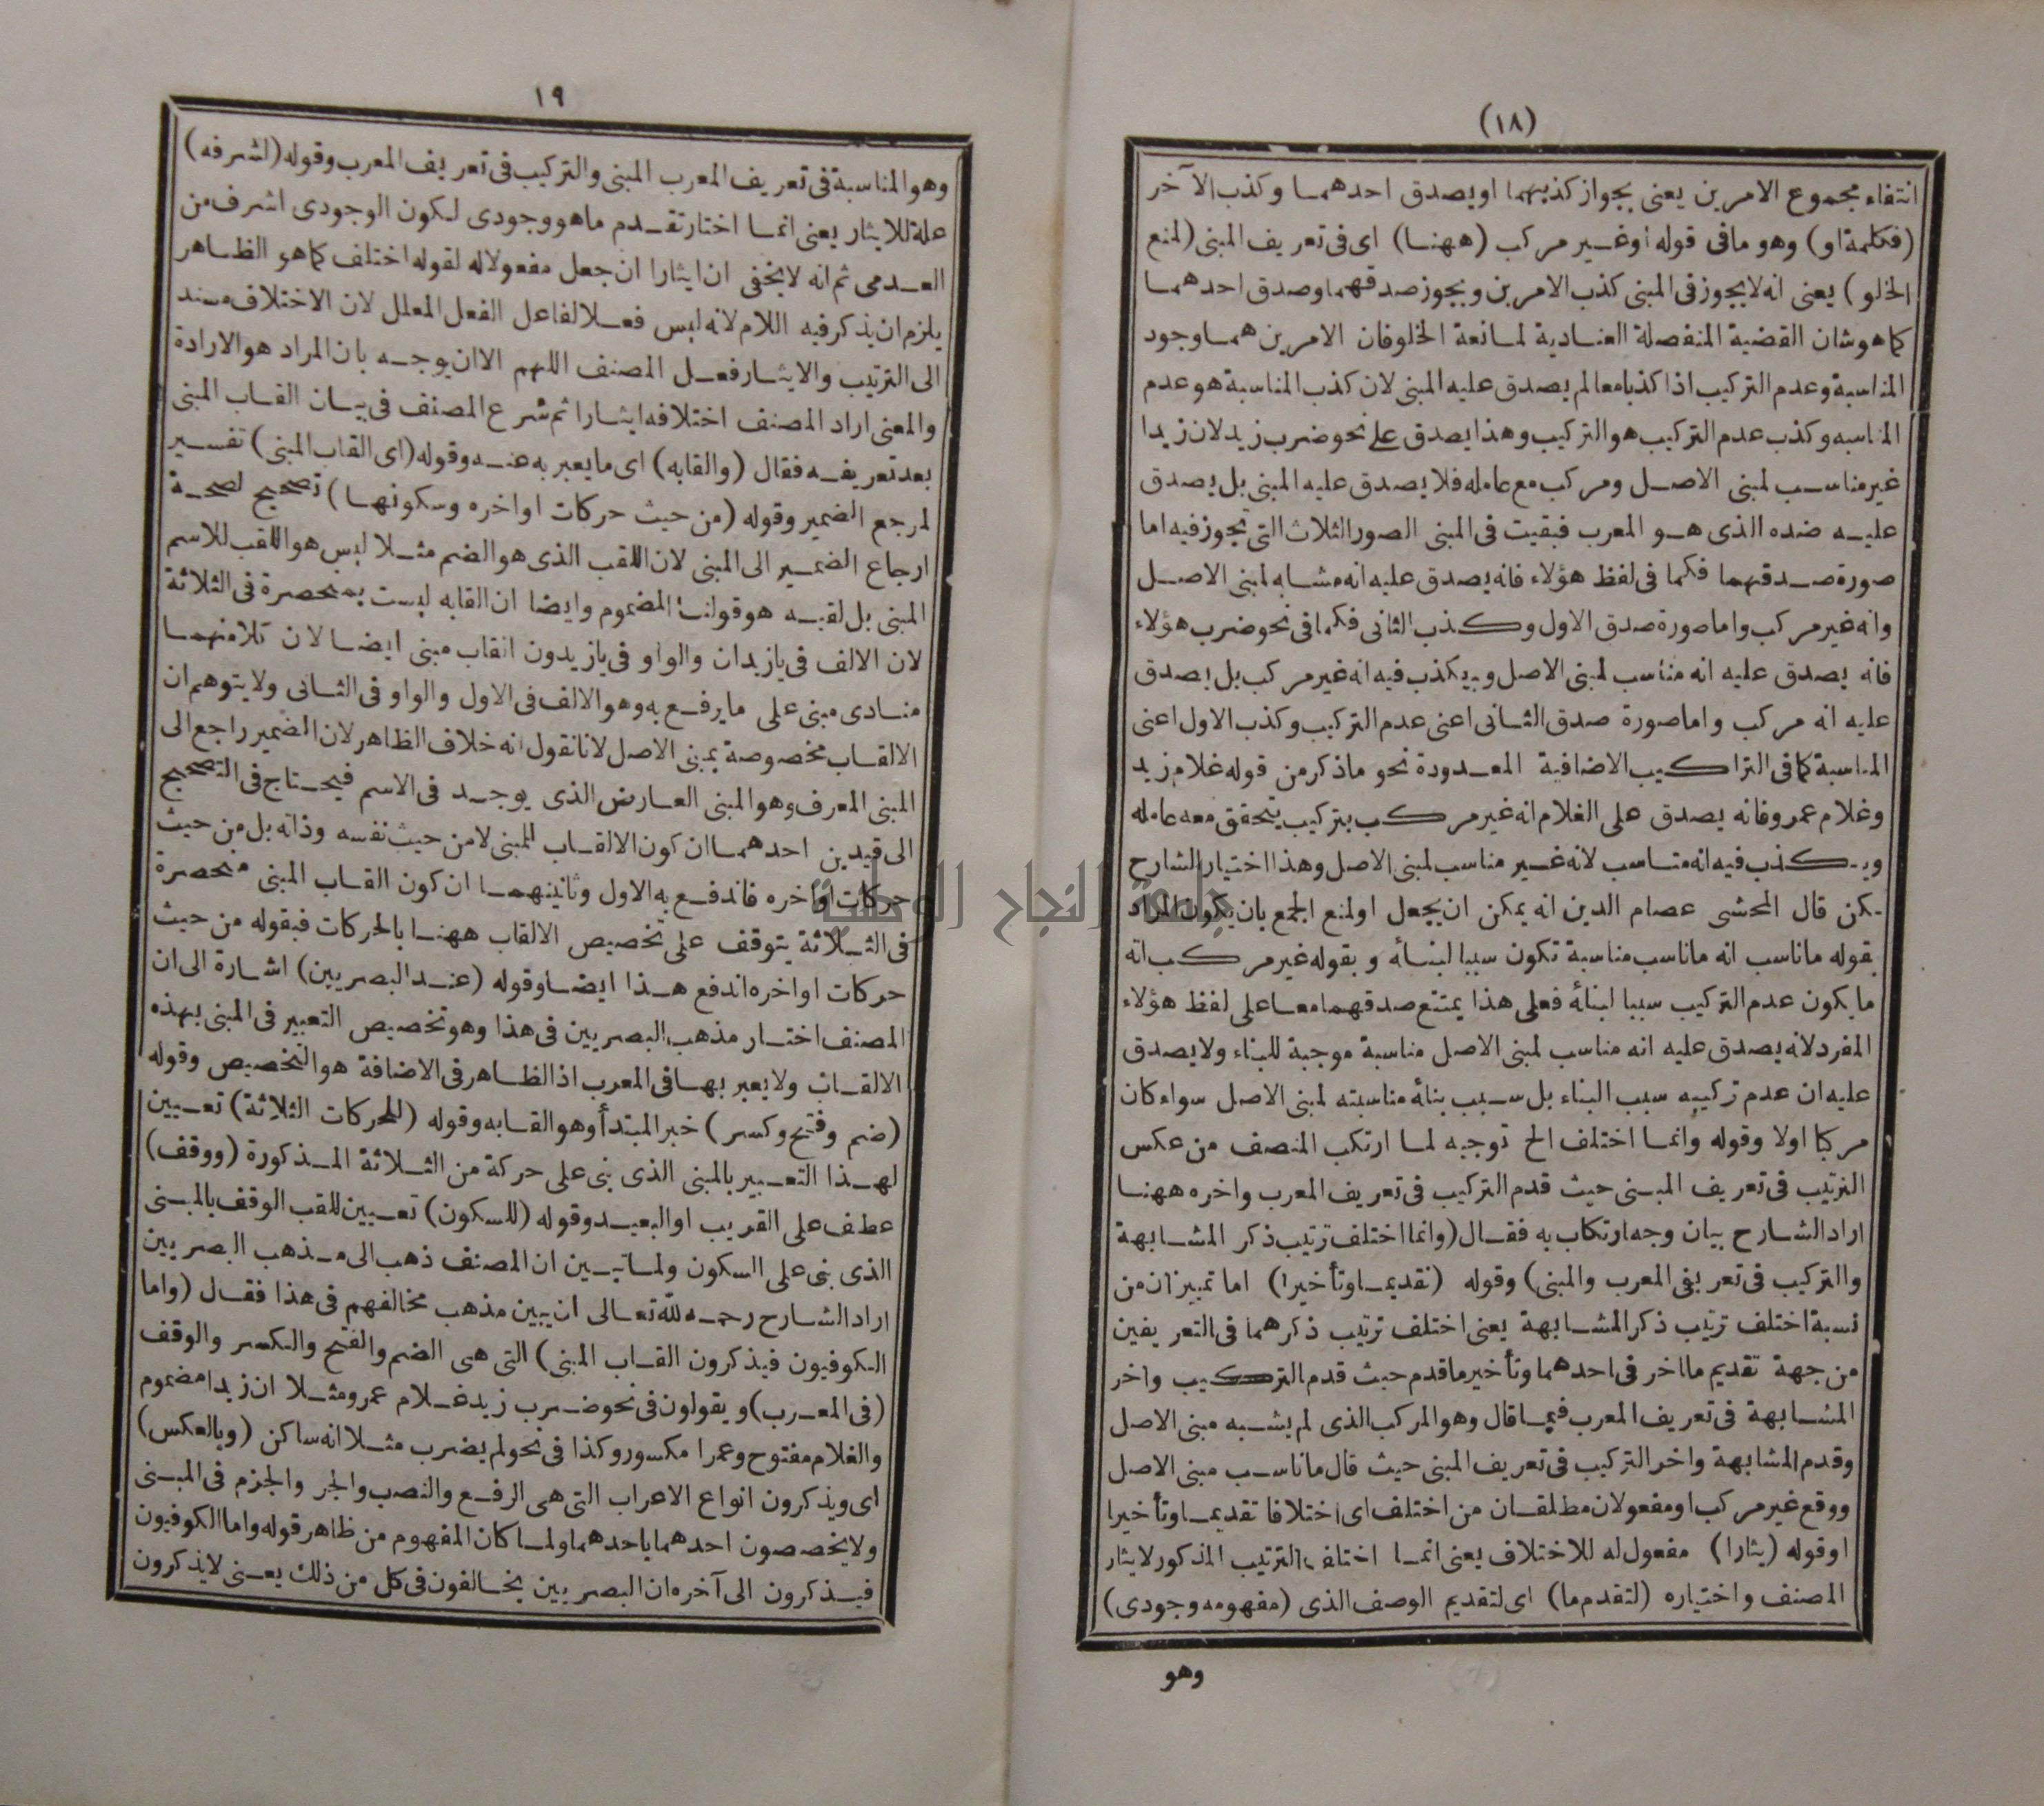 (١٨)
انتفاء مجموع الامرين يعنى بجواز كذبهما او يصدق احدهما وكذب الآخر
(فكلمة او) وهو ما فى قوله او غير مركب (ههنا) اى فى تعريف المبنى (لمنع
الخلو) يعنى انه لا يجوز فى المبنى كذب الامرين ويجوز صدقهما وصدق احدهما
كما هو شان القضية المنفصلة العنادية لمانعة الخلو فان الامرين هما وجود
المناسبة وعدم التركيب اذا كذبا معا لم يصدق عليه المبنى لان كذب المناسبة هو عدم
المناسبه وكذب عدم التركيب هو التركيب وهذا يصدق على نحو ضرب زيد لان زيدا
غير مناسب لمبنى الاصل ومركب مع عامله فلا يصدق عليه المبنى بل يصدق
عليه ضده الذى هو المعرب فبقيت فى المبنى الصور الثلاث التى تجوز فيه اما
صورة صدقهما فكما فى لفظ هؤلاء فانه يصدق عليه انه مشابه لمبنى الاصل
وانه غير مركب واما صورة صدق الاول وكذب الثانى فكما فى نحو ضرب هؤلاء
فانه يصدق عليه انه مناسب لمبنى الاصل ويكذب فيه انه غير مركب بل يصدق
عليه انه مركب واما صورة صدق الثانى اعنى عدم التركيب وكذب الاول اعنى
المناسبة كما فى التراكيب الاضافية المعدودة نحو ما ذكر من قوله غلام زيد
وغلام عمرو فانه يصدق على الغلام انه غير مركب بتركيب يتحقق معه عامله
ويكذب فيه انه مناسب لانه غير مناسب لمبنى الاصل وهذا اختيار الشارح
لكن قال المحشى عصام الدين انه يمكن ان يجعل او لمنع الجمع بان يكون المراد
بقوله ما ناسب انه ما ناسب مناسبة تكون سببا لبنائه وبقوله غير مركب انه
ما يكون عدم التركيب سببا لبنائه فعلى هذا يمتنع صدقهما معا على لفظ هؤلاء
المفرد لانه يصدق عليه انه مناسب لمبنى الاصل مناسبة موجبة للبناء ولا يصدق
عليه ان عدم تركيبه سبب البناء بل سبب بنائه مناسبته لمبنى الاصل سواء كان
مركبا اولا وقوله وانما اختلف الخ توجيه لما ارتكب المنصف من عكس
الترتيب فى تعريف المبنى حيث قدم التركيب فى تعريف المعرب واخره ههنا
اراد الشارح بيان وجه ارتكاب به فقال (وانما اختلف ترتيب ذكر المشابهة
والتركيب فى تعريفى المعرب والمبنى) وقوله (تقديما وتأخيرا) اما تمييزان من
نسبة اختلف ترتيب ذكر المشابهة يعنى اختلف ترتيب ذكرهما فى التعريفين
من جهة تقديم ما اخر فى احدهما وتأخير ما قدم حيث قدم التركيب واخر
المشابهة فى تعريف المعرب فيما قال وهو المركب الذى لم يشبه مبنى الاصل
وقدم المشابهة واخر التركيب فى تعريف المبنى حيث قال ما ناسب مبنى الاصل
ووقع غير مركب او مفعولان مطلقان من اختلف اى اختلافا تقديما وتأخيرا
او قوله (يثارا) مفعول له للاختلاف يعنى انما اختلف الترتيب المذكور لايثار
المصنف واختياره (لتقدم ما) اى لتقديم الوصف الذى (مفهومه وجودى)
وهو
١٩
وهو المناسبة فى تعريف المعرب المبنى والتركيب فى تعريف المعرب وقوله (لشرفه)
علة للايثار يعنى انما اختار تقدم ما هو وجودى لكون الوجودى اشرف من
العدمى ثم انه لا يخفى ان ايثارا ان جعل مفعولا له لقوله اختلف كما هو الظاهر
يلزم ان يذكر فيه اللام لانه ليس فعلا لفاعل الفعل المعلل لان الاختلاف مسند
الى الترتيب والايثار فعل المصنف اللهم الا ان يوجه بان المراد هو الارادة
والمعنى اراد المصنف اختلافه ايثارا ثم شرع المصنف فى بيان القاب المبنى
بعد تعريفه فقال (والقابه) اى ما يعبر به عنه وقوله (اى القاب المبنى) تفسير
لمرجع الضمير وقوله (من حيث حركات اواخره وسكونها) تصحيح لصحة
ارجاع الضمير الى المبنى لان اللقب الذى هو الضم مثلا ليس هو اللقب للاسم
المبنى بل لقبه هو قولنا المضموم وايضا ان القابه ليست بمنحصرة فى الثلاثة
لان الالف فى يازيدان والواو فى يازيدون القاب مبنى ايضا لان كلا منهما
منادى مبنى على ما يرفع به وهو الالف فى الاول والواو فى الثانى ولا يتوهم ان
الالقاب مخصوصة بمبنى الاصل لانا نقول انه خلاف الظاهر لان الضمير راجع الى
المبنى المعرف وهو المبنى العارض الذى يوجد فى الاسم فيحتاج فى التصحيح
الى قيدين احدهما ان كون الالقاب للمبنى لا من حيث نفسه وذاته بل من حيث
حركات اواخره فاندفع به الاول وثانيهما ان كون القاب المبنى منحصرة
فى الثلاثة يتوقف على تخصيص الالقاب ههنا بالحركات فبقوله من حيث
حركات اواخره اندفع هذا ايضا وقوله (عند البصريين) اشارة الى ان
المصنف اختار مذهب البصريين فى هذا وهو تخصيص التعبير فى المبنى بهذه
الالقاب ولا يعبر بها فى المعرب اذ الظاهر فى الاضافة هو التخصيص وقوله
(ضم وفتح وكسر) خبر المبتدأ وهو القابه وقوله (للحركات الثلاثة) تعيين
لهذا التعبير بالمبنى الذى بنى على حركة من الثلاثة المذكورة (ووقف)
عطف على القريب او البعيد وقوله (للسكون) تعيين للقب الوقف بالمبنى
الذى بنى على السكون ولما تبين ان المصنف ذهب الى مذهب البصريين
اراد الشارح رحمه الله تعالى ان يبين مذهب مخالفهم فى هذا فقال (واما
الكوفيون فيذكرون القاب المبنى) التى هى الضم والفتح والكسر والوقف
(فى المعرب) ويقولون فى نحو ضرب زيد غلام عمرو مثلا ان زيدا مضموم
والغلام مفتوح وعمرا مكسور وكذا فى نحو لم يضرب مثلا انه ساكن (وبالعكس)
اى ويذكرون انواع الاعراب التى هى الرفع والنصب والجر والجزم فى المبنى
ولا يخصصون احدهما باحدهما ولما كان المفهوم من ظاهر قوله واما الكوفيون
فيذكرون الى آخره ان البصريين يخالفون فى كل من ذلك يعنى لا يذكرون
جامعة النجاح الوطنية